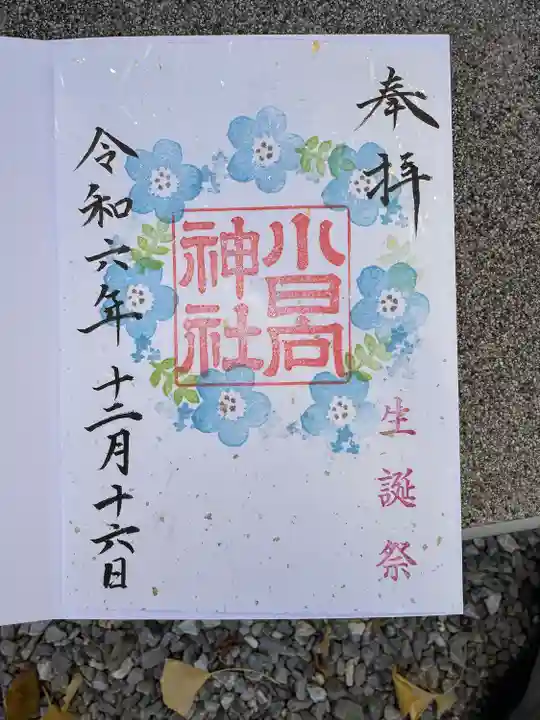 奉拝
小日向
神社
生誕祭
令和六年十二月十六日